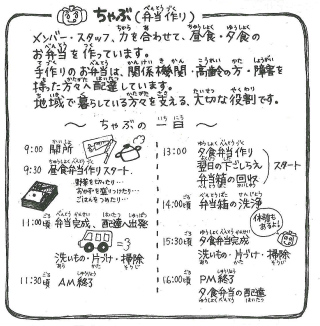 ちゃぶ(弁当作り)
メンバー・スタッフ、力を合わせて、昼食・夕食の
お弁当を作っています。
手作りのお弁当は、関係機関・高齢の方・障害を
持った方々へ配達しています。
地域で暮らしている方々を支える、大切な役割です。
～ ちゃぶの一日 ～
9:00 開所
9:30 昼食弁当作りスタート
野菜を切ったり…
おかずを盛りつけたり…
ごはんをつめたり…
11:00頃 弁当完成、配達へ出発
洗いもの・片づけ・掃除
11:30頃 AM終了
13:00 夕食弁当作り
翌日の下ごしらえ
弁当箱の回収
スタート
14:00頃 弁当箱の洗浄
休憩も
あるよ!
15:30頃 夕食弁当完成
洗いもの・片づけ・掃除
16:00頃 PM終了
夕食弁当の配達